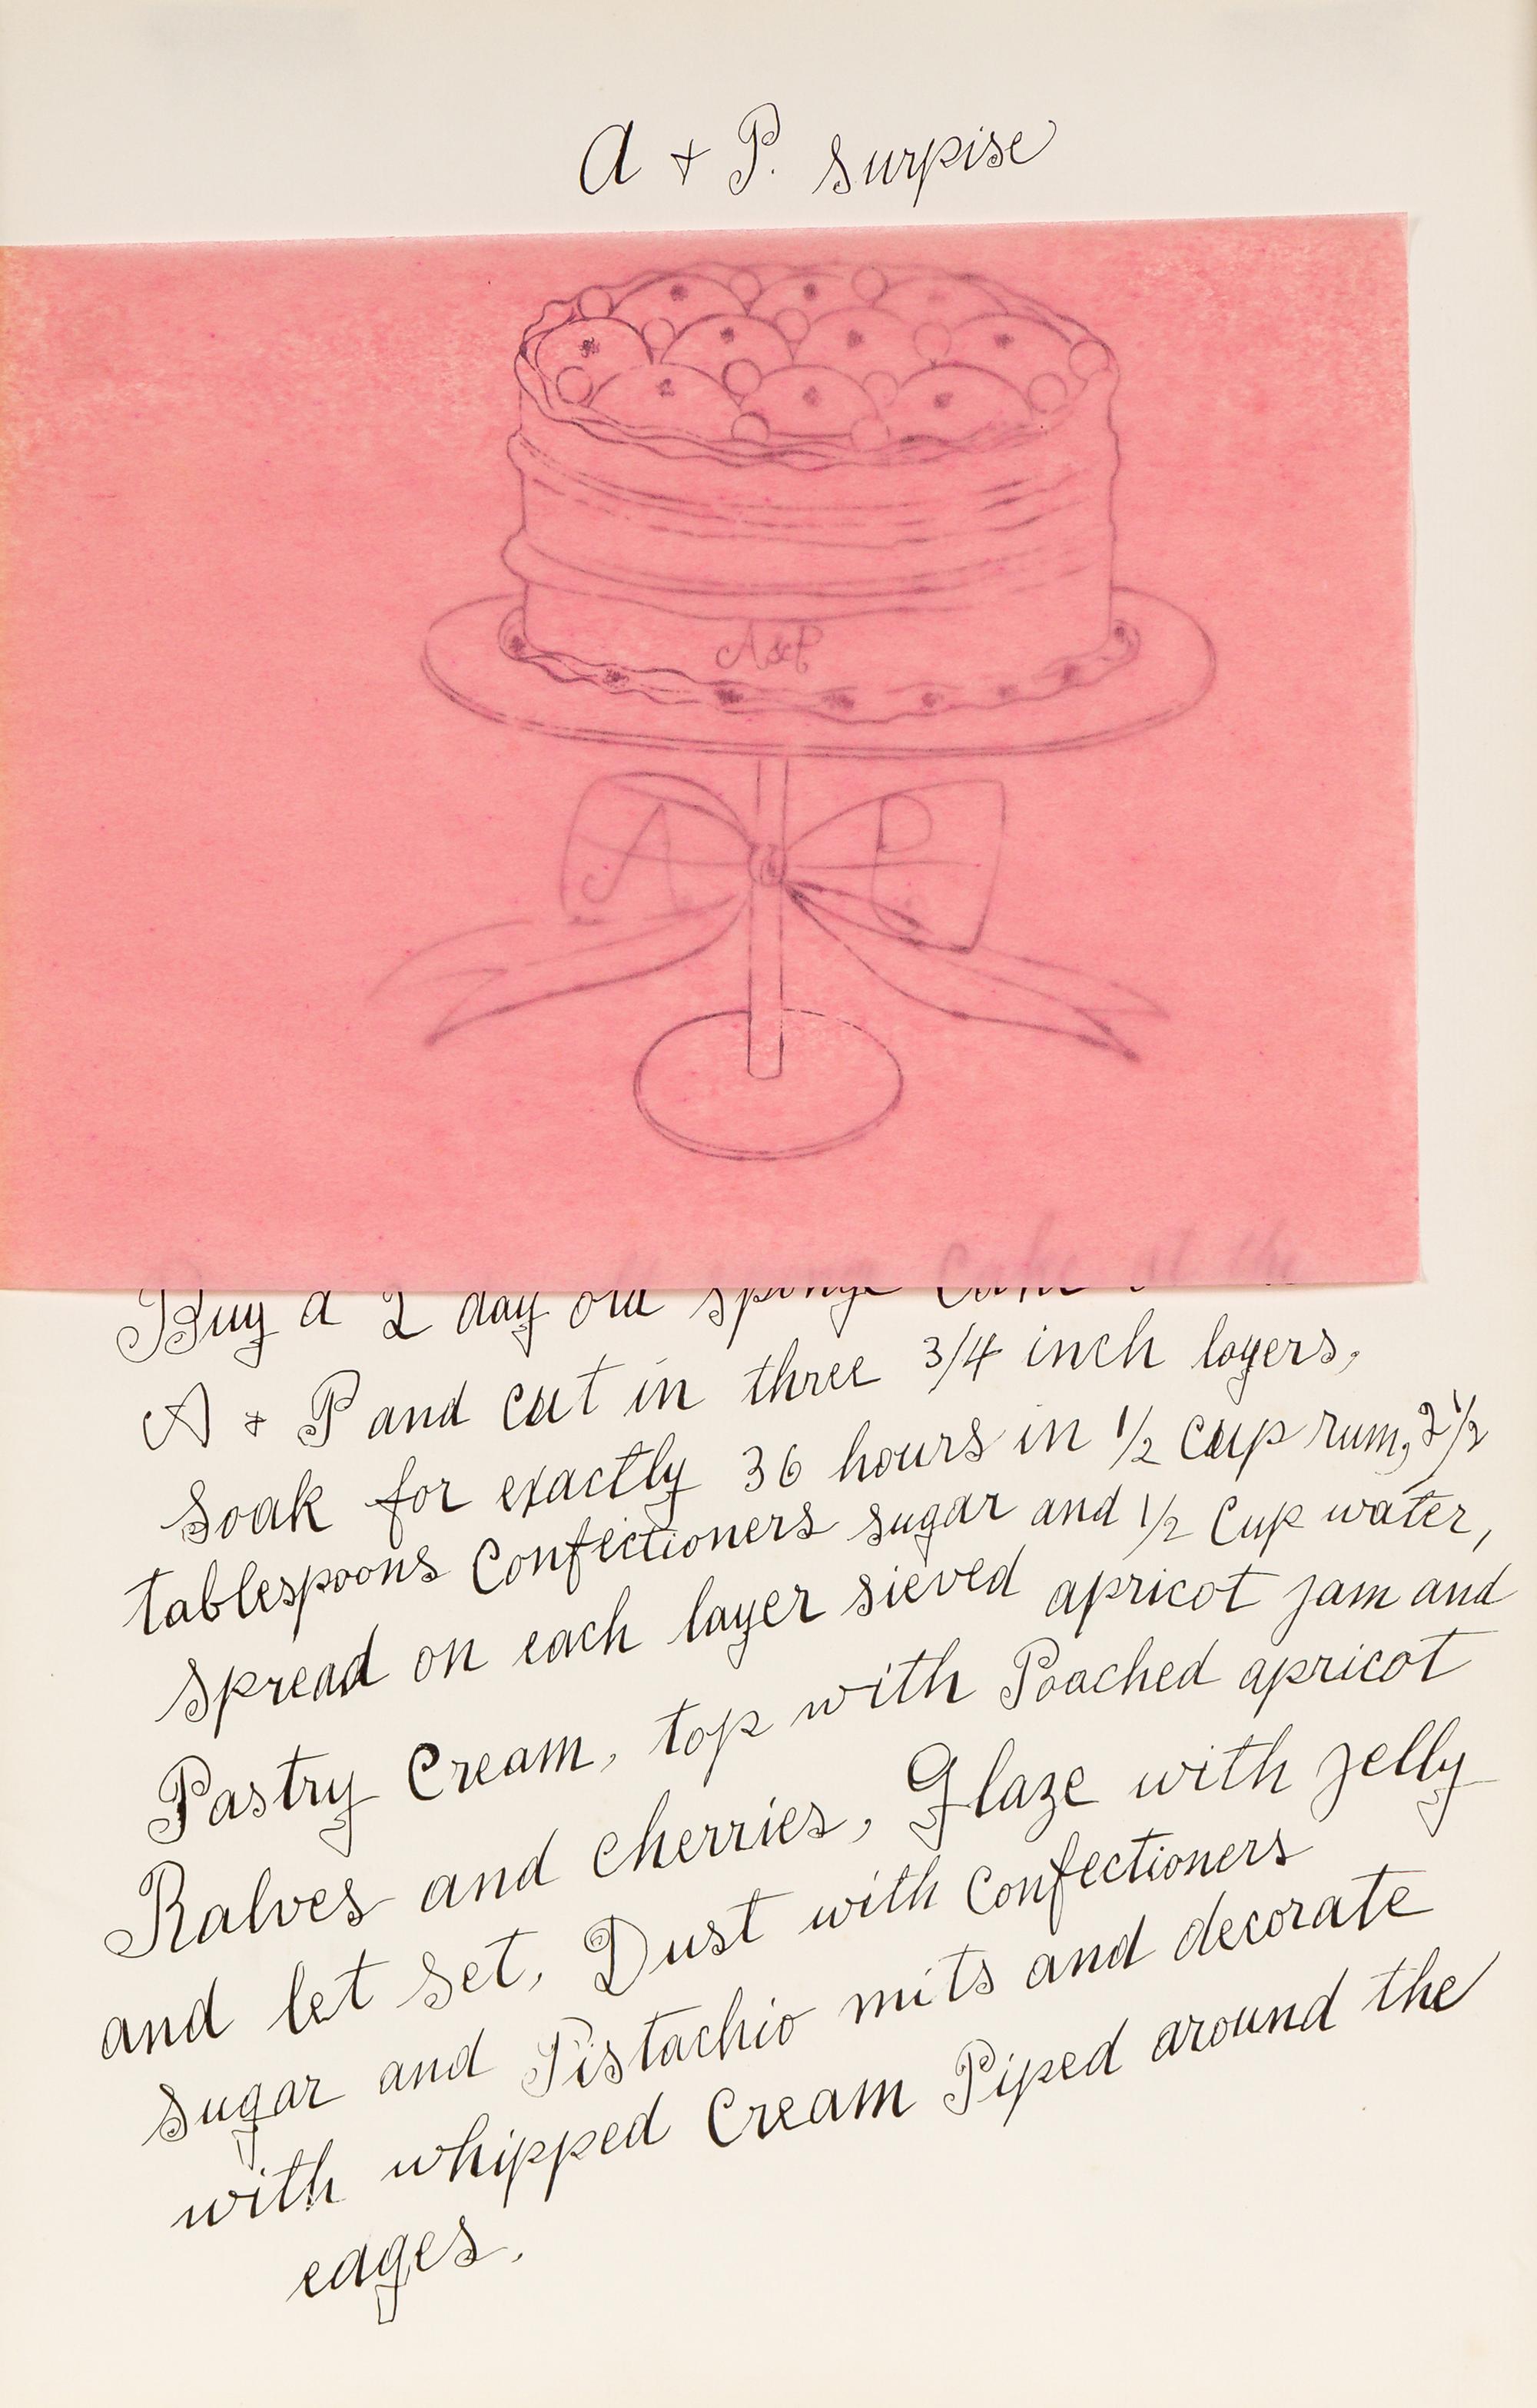 A & P. surpise
A & P
A P
Buy a 2 day old sponge Cake at the
A & P and cut in three 3/4 inch layers,
soak for exactly 36 hours in 1/2 cup rum, 2 1/2
tablespoons Confectioners sugar and 1/2 Cup water,
spread on each layer sieved apricot jam and
Pastry Cream, top with Poached apricot
Ralves and cherries, Glaze with jelly
and let set, Dust with Confectioners
sugar and Pistachio nuts and decorate
with whipped Cream Piped around the
edges.